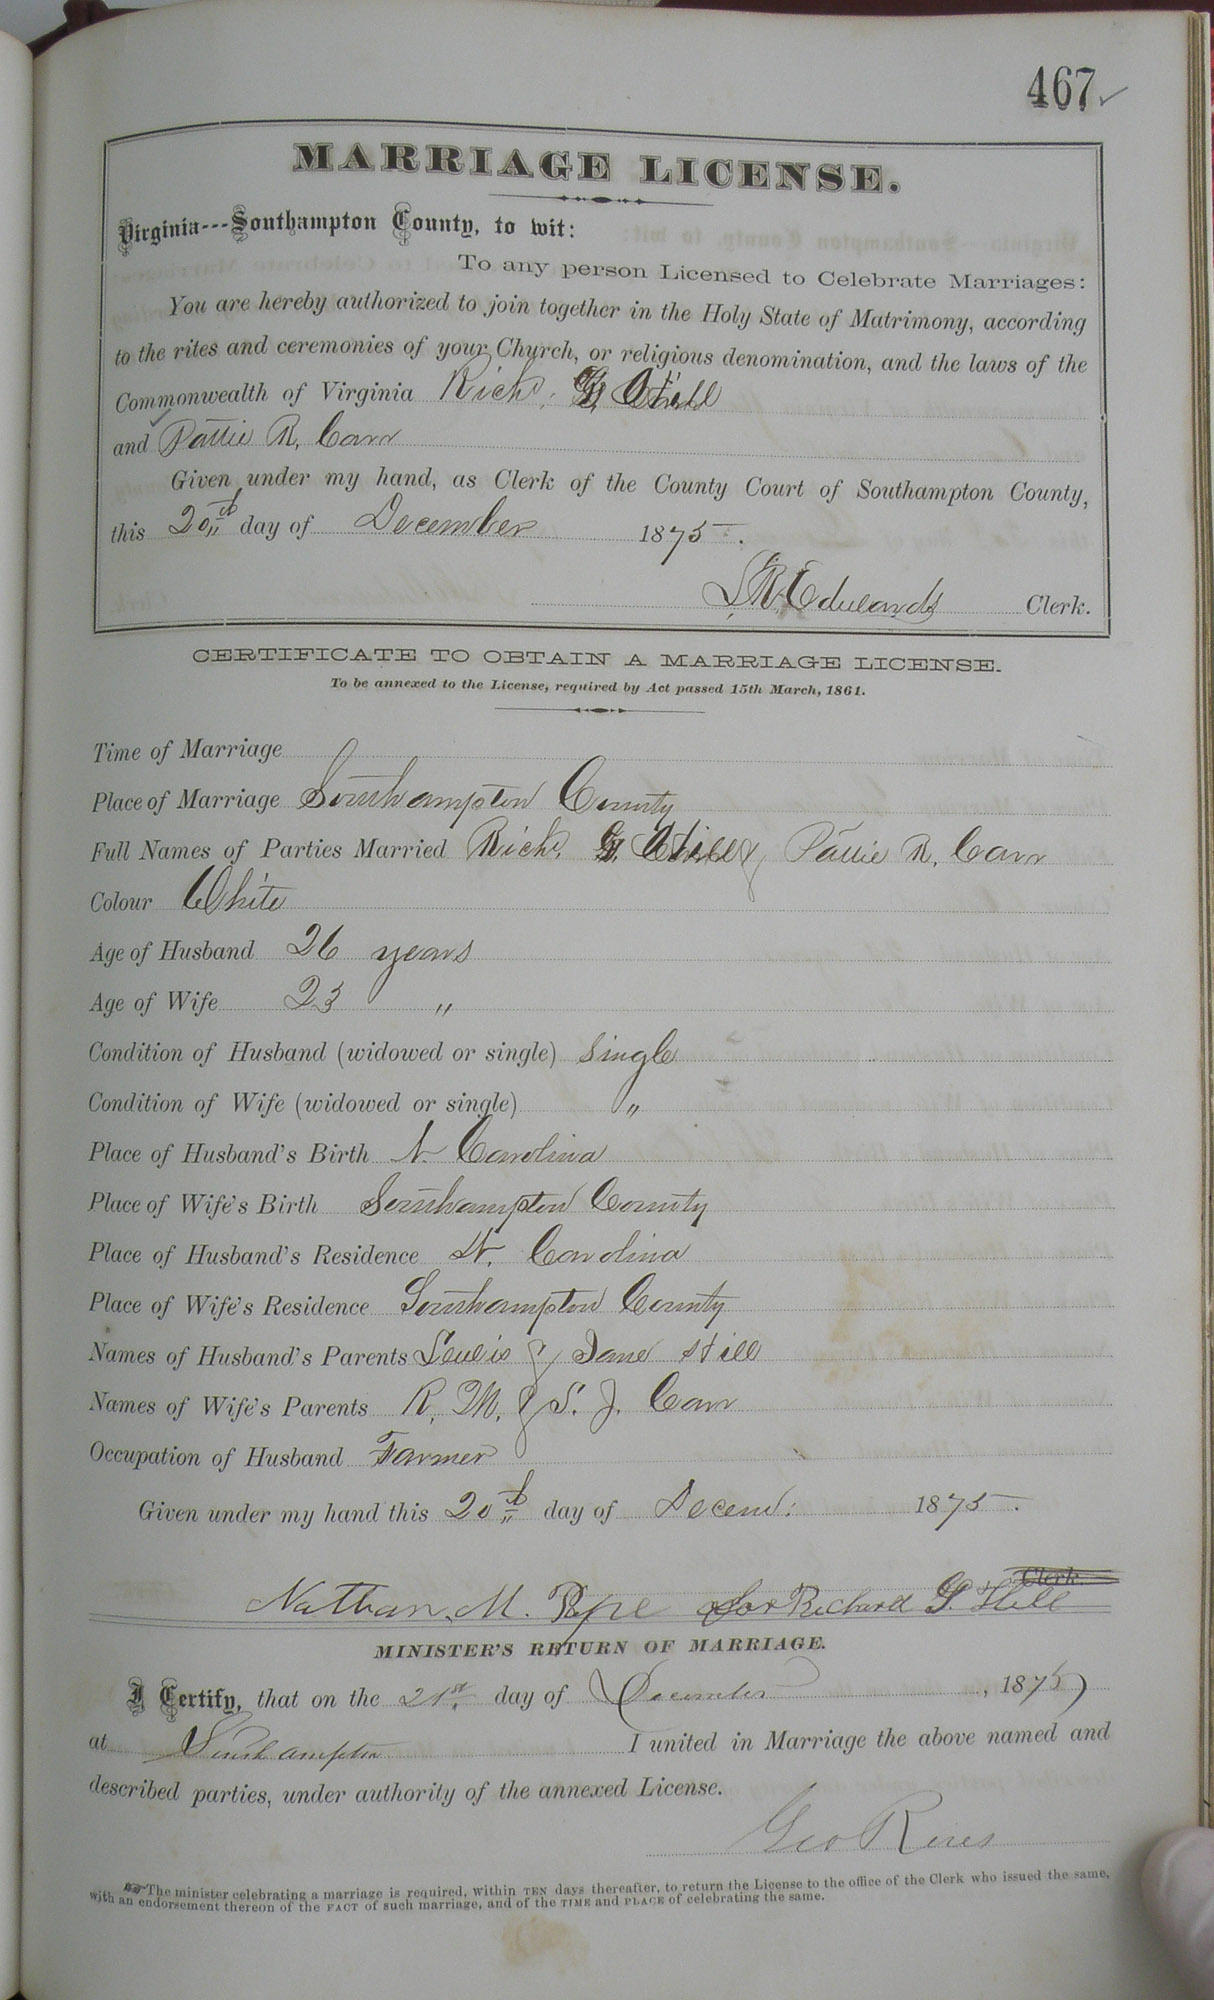 467
MARRIAGE LICENSE.
Virginia---Southampton County, to wit:
To any person Licensed to Celebrate Marriages:
You are hereby authorized to join together in the Holy State of Matrimony, according
to the rites and ceremonies of your Church, or religious denomination, and the laws of the
Commonwealth of Virginia Richd. G. Hill
and Pattie R. Carr
Given under my hand, as Clerk of the County Court of Southampton County,
this 20th day of December 1875.
L. R. Edwards Clerk.
CERTIFICATE TO OBTAIN A MARRIAGE LICENSE.
To be annexed to the License, required by Act passed 15th March, 1861.
Time of Marriage
Place of Marriage Southampton County
Full Names of Parties Married Richd. G. Hill & Pattie R. Carr
Colour White
Age of Husband 26 years
Age of Wife 23 "
Condition of Husband (widowed or single) Single
Condition of Wife (widowed or single) "
Place of Husband's Birth N. Carolina
Place of Wife's Birth Southampton County
Place of Husband's Residence N. Carolina
Place of Wife's Residence Southampton County
Names of Husband's Parents Lewis & Jane Hill
Names of Wife's Parents R. M. & S. J. Carr
Occupation of Husband Farmer
Given under my hand this 20th day of Decem: 1875.
Clerk.
Nathan. M. Pope for Richard G. Hill
MINISTER'S RETURN OF MARRIAGE.
I Certify, that on the 21st. day of December, 1875
at Southampton I united in Marriage the above named and
described parties, under authority of the annexed License.
Geo
The minister celebrating a marriage is required, within TEN days thereafter, to return the License to the office of the Clerk who issued the same,
with an endorsement thereon of the FACT of such marriage, and of the TIME and PLACE of celebrating the same.